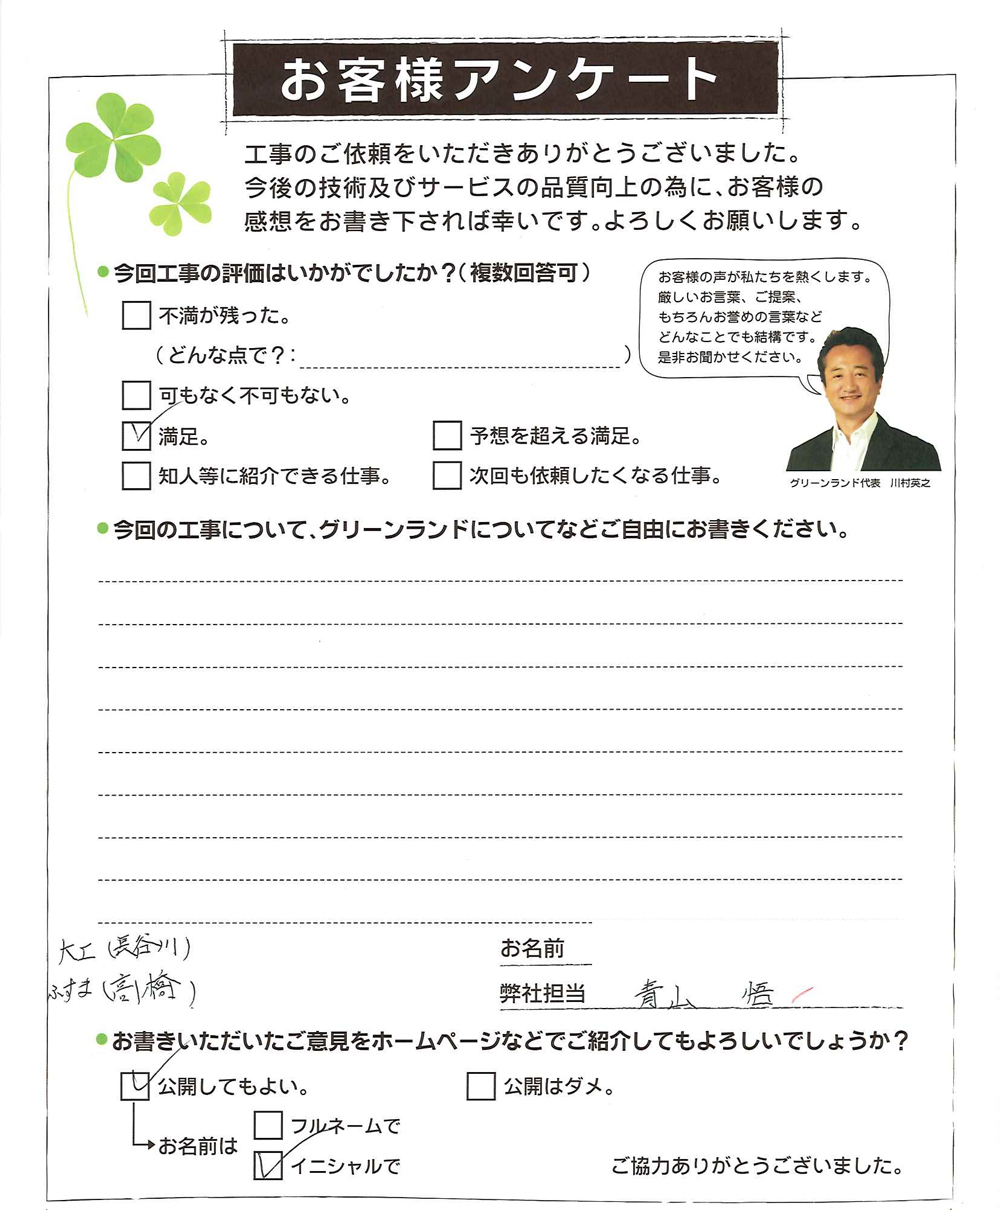 お客様アンケート
工事のご依頼をいただきありがとうございました。
今後の技術及びサービスの品質向上の為に、お客様の
感想をお書き下されば幸いです。よろしくお願いします。
今回工事の評価はいかがでしたか？（複数回答可）
お客様の声が私たちを熱くします。
厳しいお言葉、ご提案、
もちろんお誉めの言葉など
どんなことでも結構です。
是非お聞かせください。
不満が残った。
（どんな点で？：　）
可もなく不可もない。
満足。
予想を超える満足。
知人等に紹介できる仕事。
次回も依頼したくなる仕事。
グリーンランド代表　川村英之
今回の工事について、グリーンランドについてなどご自由にお書きください。
大工（長谷川）
お名前
ふすま（高橋）
弊社担当　青山　悟
お書きいただいたご意見をホームページなどでご紹介してもよろしいでしょうか？
公開してもよい。
公開はダメ。
お名前は
フルネームで
イニシャルで
ご協力ありがとうございました。